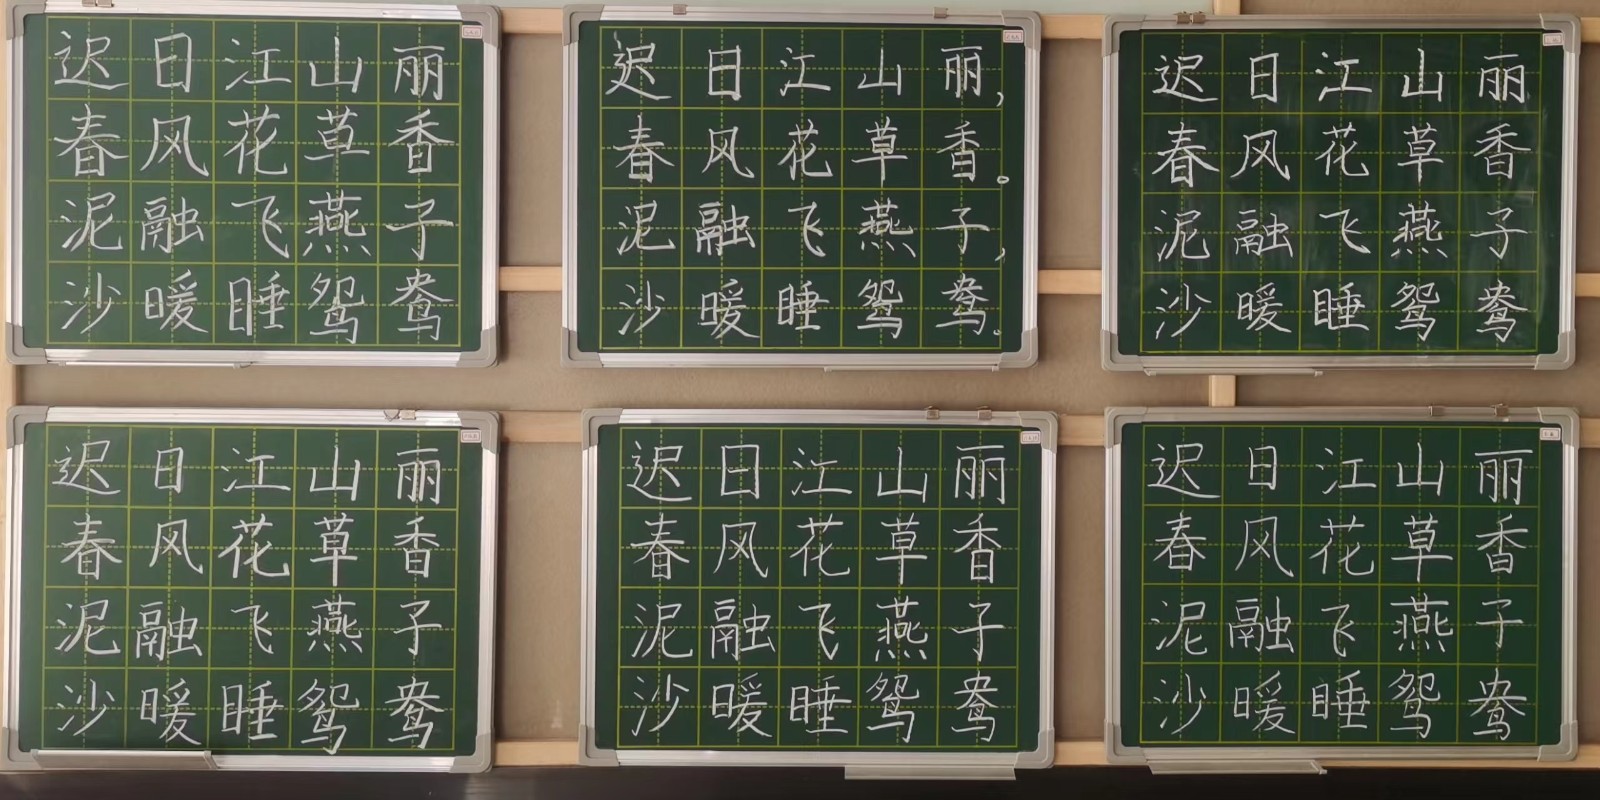 迟日江山丽
春风花草香
泥融飞燕子
沙暖睡鸳鸯
迟日江山丽,
春风花草香。
泥融飞燕子,
沙暖睡鸳鸯。
迟日江山丽
春风花草香
泥融飞燕子
沙暖睡鸳鸯
迟日江山丽
春风花草香
泥融飞燕子
沙暖睡鸳鸯
迟日江山丽
春风花草香
泥融飞燕子
沙暖睡鸳鸯
迟日江山丽
春风花草香
泥融飞燕子
沙暖睡鸳鸯